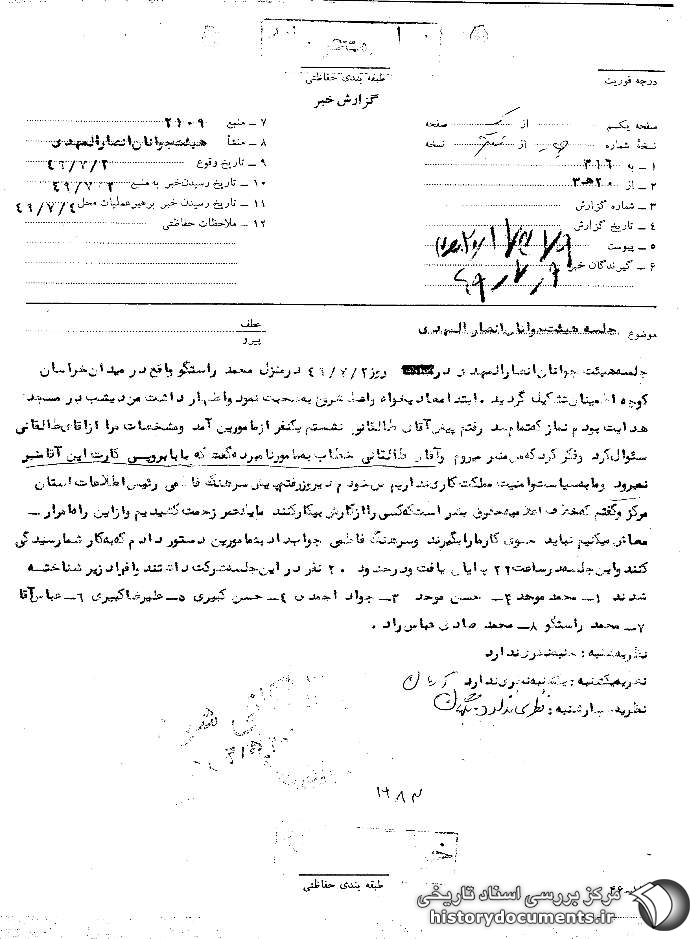 طبقه بندی حفاظتی
گزارش خبر
درجه فوریت
صفحه یکم از یک صفحه
نسخهٔ شماره از نسخه
۱ ـ به ۳۱۶
۲ ـ از ۲۰ هـ ۳
۳ ـ شماره گزارش
۴ ـ تاریخ گزارش
۵ ـ پیوست
۶ ـ گیرندگان خبر
۷ ـ منبع ۲۱۰۹
۸ ـ منشأ هیئت جوانان انصارالمهدی
۹ ـ تاریخ وقوع ۴۹/۷/۲
۱۰ ـ تاریخ رسیدن خبر به منبع ۴۹/۷/۲
۱۱ ـ تاریخ رسیدن خبر برهبر عملیات محل ۴۹/۷/۴
۱۲ ـ ملاحظات حفاظتی
موضوع جلسه هیئت جوانان انصارالمهدی
عطف
پیرو
جلسه هیئت جوانان انصارالمهدی در روز ۴۹/۷/۲ در منزل محمد راستگو واقع در میدان خراسان
کوچه اطمینان تشکیل گردید . ابتدا عمادی خواه واعظ شروع به صحبت نمود و اظهار داشت من دیشب در مسجد
هدایت بودم نماز که تمام شد رفتم پیش آقای طالقانی نشستم یکنفر از مامورین آمد و مشخصات مرا از آقای طالقانی
سئوال کرد و فکر کرد که من منبر میروم و آقای طالقانی خطاب به مامور نامبرده گفت که بابا برو پی کارت این آقا منبر
نمیرود و ما به سیاست و امنیت مملکت کاری نداریم من خودم دیروز رفتم پیش سرهنگ فاطمی رئیس اطلاعات استان
مرکز و گفتم که خلاف اعلامیه حقوق بشر است که کسی را از کارش بیکار کنند ما یک عمر زحمت کشیدیم و از این راه امرار ـ
معاش میکنیم نباید جلوی کار ما را بگیرند و سرهنگ فاطمی جواب داد به مامورین دستور دادم که به کار شما رسیدگی
کنند و این جلسه در ساعت ۲۲ پایان یافت و در حدود ۲۰ نفر در این جلسه شرکت داشتند و افراد زیر شناخته
شدند ۱ ـ محمد موحد ۲ ـ حسن موحد ۳ ـ جواد احمدی ۴ ـ حسن کبیری ۵ ـ علیرضا کبیری ۶ ـ عباس آقا
۷ ـ محمد راستگو ۸ ـ محمد صادق عباس راد .
نظریه شنبه : شنبه نظری ندارد
نظریه یکشنبه : یکشنبه نظری ندارد
نظریه سه شنبه : نظری ندارد
بایگانی شود
طبقه بندی حفاظتی
مرکز بررسی اسناد تاریخی
historydocuments.ir